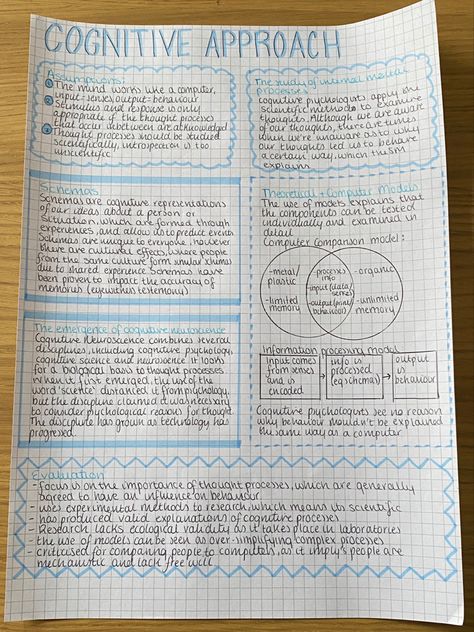 COGNITIVE APPROACH
Assumptions:
① The mind works like a computer,
input=senses, output=behaviour
② Stimulus and response is only
appropriate if the thought processes
that occur inbetween are acknowledged
③ Thought processes should be studied
scientifically, introspection is too
unscientific
The study of internal mental
processes:
cognitive psychologists apply the
scientific method to examine
thoughts. Although we are aware
of our thoughts, there are times
when we're unaware as to why
our thoughts led us to behave
a certain way, which this
explains
Schemas
Schemas are cognitive representations
of our ideas about a person or
situation, which are formed through
experiences, and allow us to predict events
Schemas are unique to everyone, however
there are cultural effects, where people
from the same culture form similar schemas
due to shared experience. Schemas have
been proven to impact the accuracy of
memories (eyewitness testemony)
Theoretical + Computer Models
The use of models explains that
the components can be tested
individually and examined in
detail
Computer comparison model:
-metal/
plastic
-limited
memory
-process
info
-input(data/
senses)
-output(print/
behaviour)
-organic
-unlimited
memory
Information processing model
input comes
from senses
and is
encoded
info is
processed
(eg schemas)
output
is
behaviour
Cognitive psychologists see no reason
why behaviour shouldn't be explained
the same way as a computer
The emergence of cognitive neuroscience
Cognitive Neuroscience combines several
disciplines, including cognitive psychology,
cognitive science and neuroscience. it looks
for a biological basis to thought processes
When it first emerged, the use of the
word 'science' distanced it from psychology,
but the discipline claimed it was necessary
to consider psychological reasons for thought.
The discipline has grown as technology has
progressed.
Evaluation
-Focus is on the importance of thought processes, which are generally
agreed to have an influence on behaviour.
- uses experimental methods to research, which means its scientific
- has produced valid explanations of cognitive processes
- Research lacks ecological validity as it takes place in laboratories
- the use of models can be seen as over-simplifying complex processes
- criticised for comparing people to computers, as it imply's people are
mechanistic and lack free will